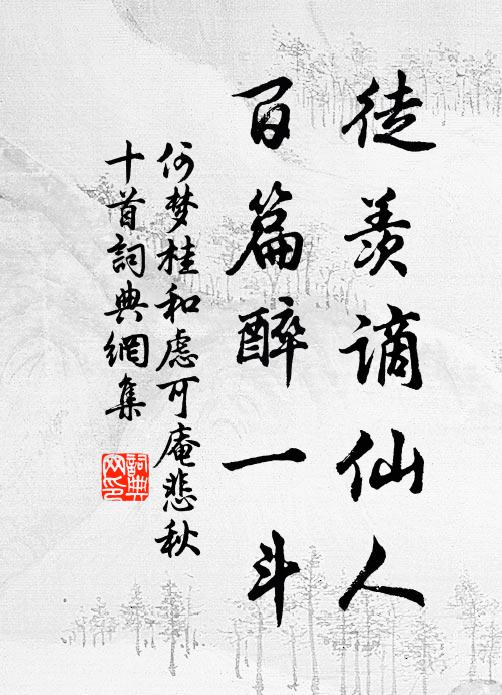 徒羨謫仙人
百篇醉一斗
何梦桂和慮可庵悲秋
十首詞典網集
詞典
网印